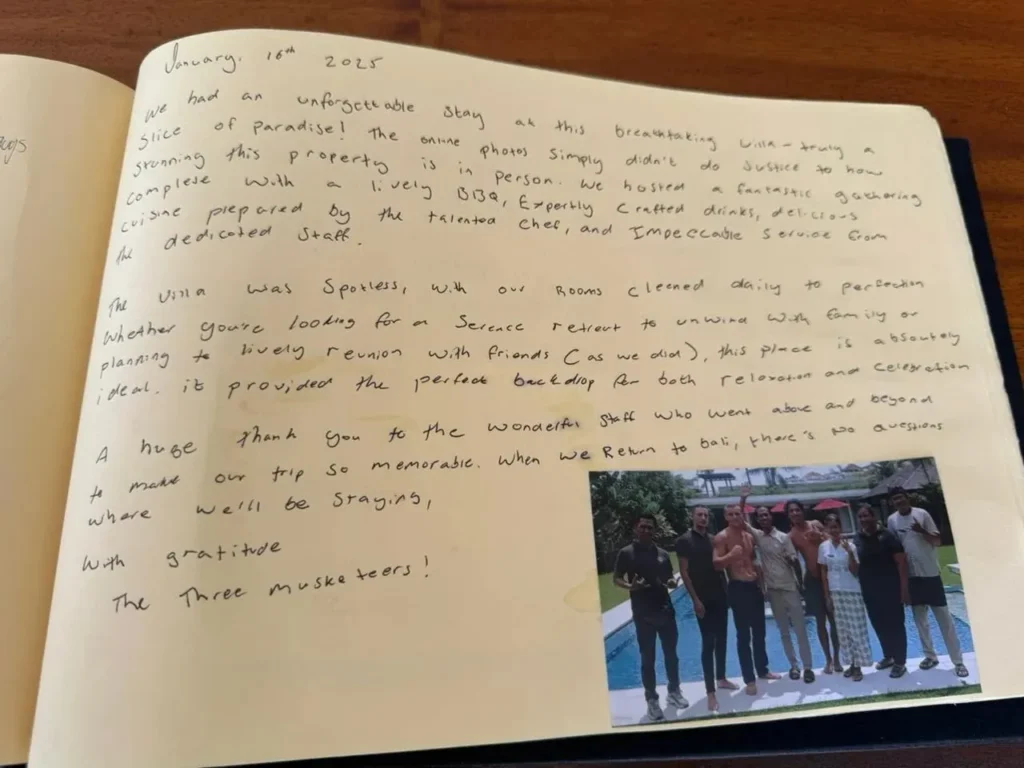 ays
January, 16th 2025
We had an unforgettable stay at this breathtaking villa - truly a
slice of paradise! The online photos simply didn't do Justice to how
stunning this property is in person. We hosted a fantastic gathering
complete with a lively BBQ, Expertly crafted drinks, delicious
cuisine prepared by the talented chef, and Impeccable service from
the dedicated staff.
The villa was Spotless, with our Rooms cleaned daily to perfection
Whether you're looking for a Serence retreat to unwind with family or
planning to lively reunion with friends (as we did), this place is absoutely
ideal. it provided the perfect backdrop for both relaxation and celebration
A huge thank you to the wonderful staff who went above and beyond
to make our trip so memorable. When we Return to bali, there's No questions
where we'll be staying,
With gratitude
The Three Musketeers!